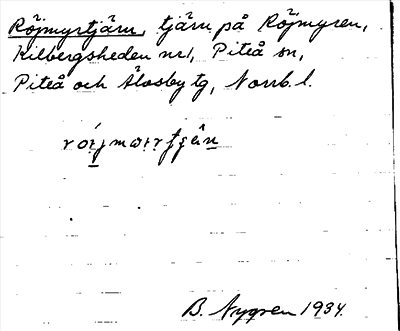 Röjmyrtjärn, tjärn på Röjmyren,
Kilbergsheden nr 1, Piteå sn,
Piteå och Älvsby tg, Norrb. l.
B. Nygren 1934.